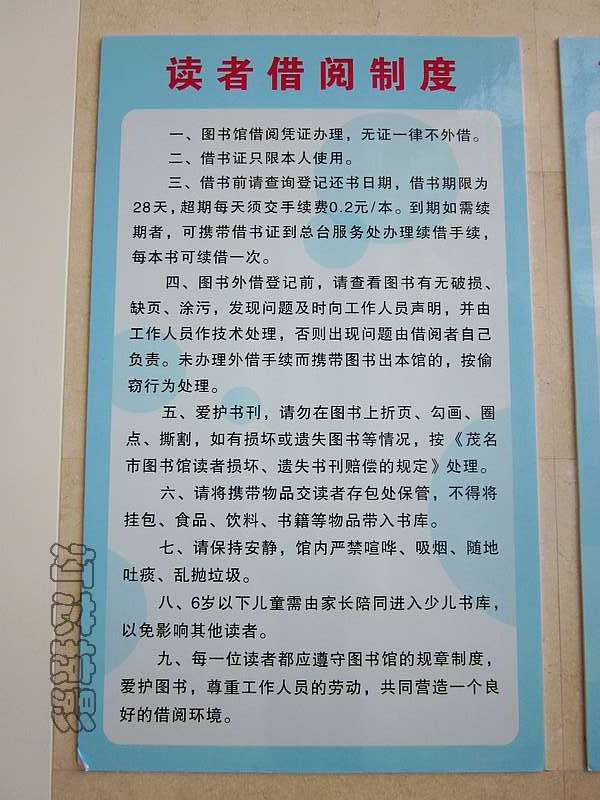 读者借阅制度
一、图书馆借阅凭证办理，无证一律不外借。
二、借书证只限本人使用。
三、借书前请查询登记还书日期，借书期限为
28天，超期每天须交手续费0.2元/本。到期如需续
期者，可携带借书证到总台服务处办理续借手续，
每本书可续借一次。
四、图书外借登记前，请查看图书有无破损、
缺页、涂污，发现问题及时向工作人员声明，并由
工作人员作技术处理，否则出现问题由借阅者自己
负责。未办理外借手续而携带图书出本馆的，按偷
窃行为处理。
五、爱护书刊，请勿在图书上折页、勾画、圈
点、撕割，如有损坏或遗失图书等情况，按《茂名
市图书馆读者损坏、遗失书刊赔偿的规定》处理。
六、请将携带物品交读者存包处保管，不得将
挂包、食品、饮料、书籍等物品带入书库。
七、请保持安静，馆内严禁喧哗、吸烟、随地
吐痰、乱抛垃圾。
八、6岁以下儿童需由家长陪同进入少儿书库，
以免影响其他读者。
九、每一位读者都应遵守图书馆的规章制度，
爱护图书，尊重工作人员的劳动，共同营造一个良
好的借阅环境。